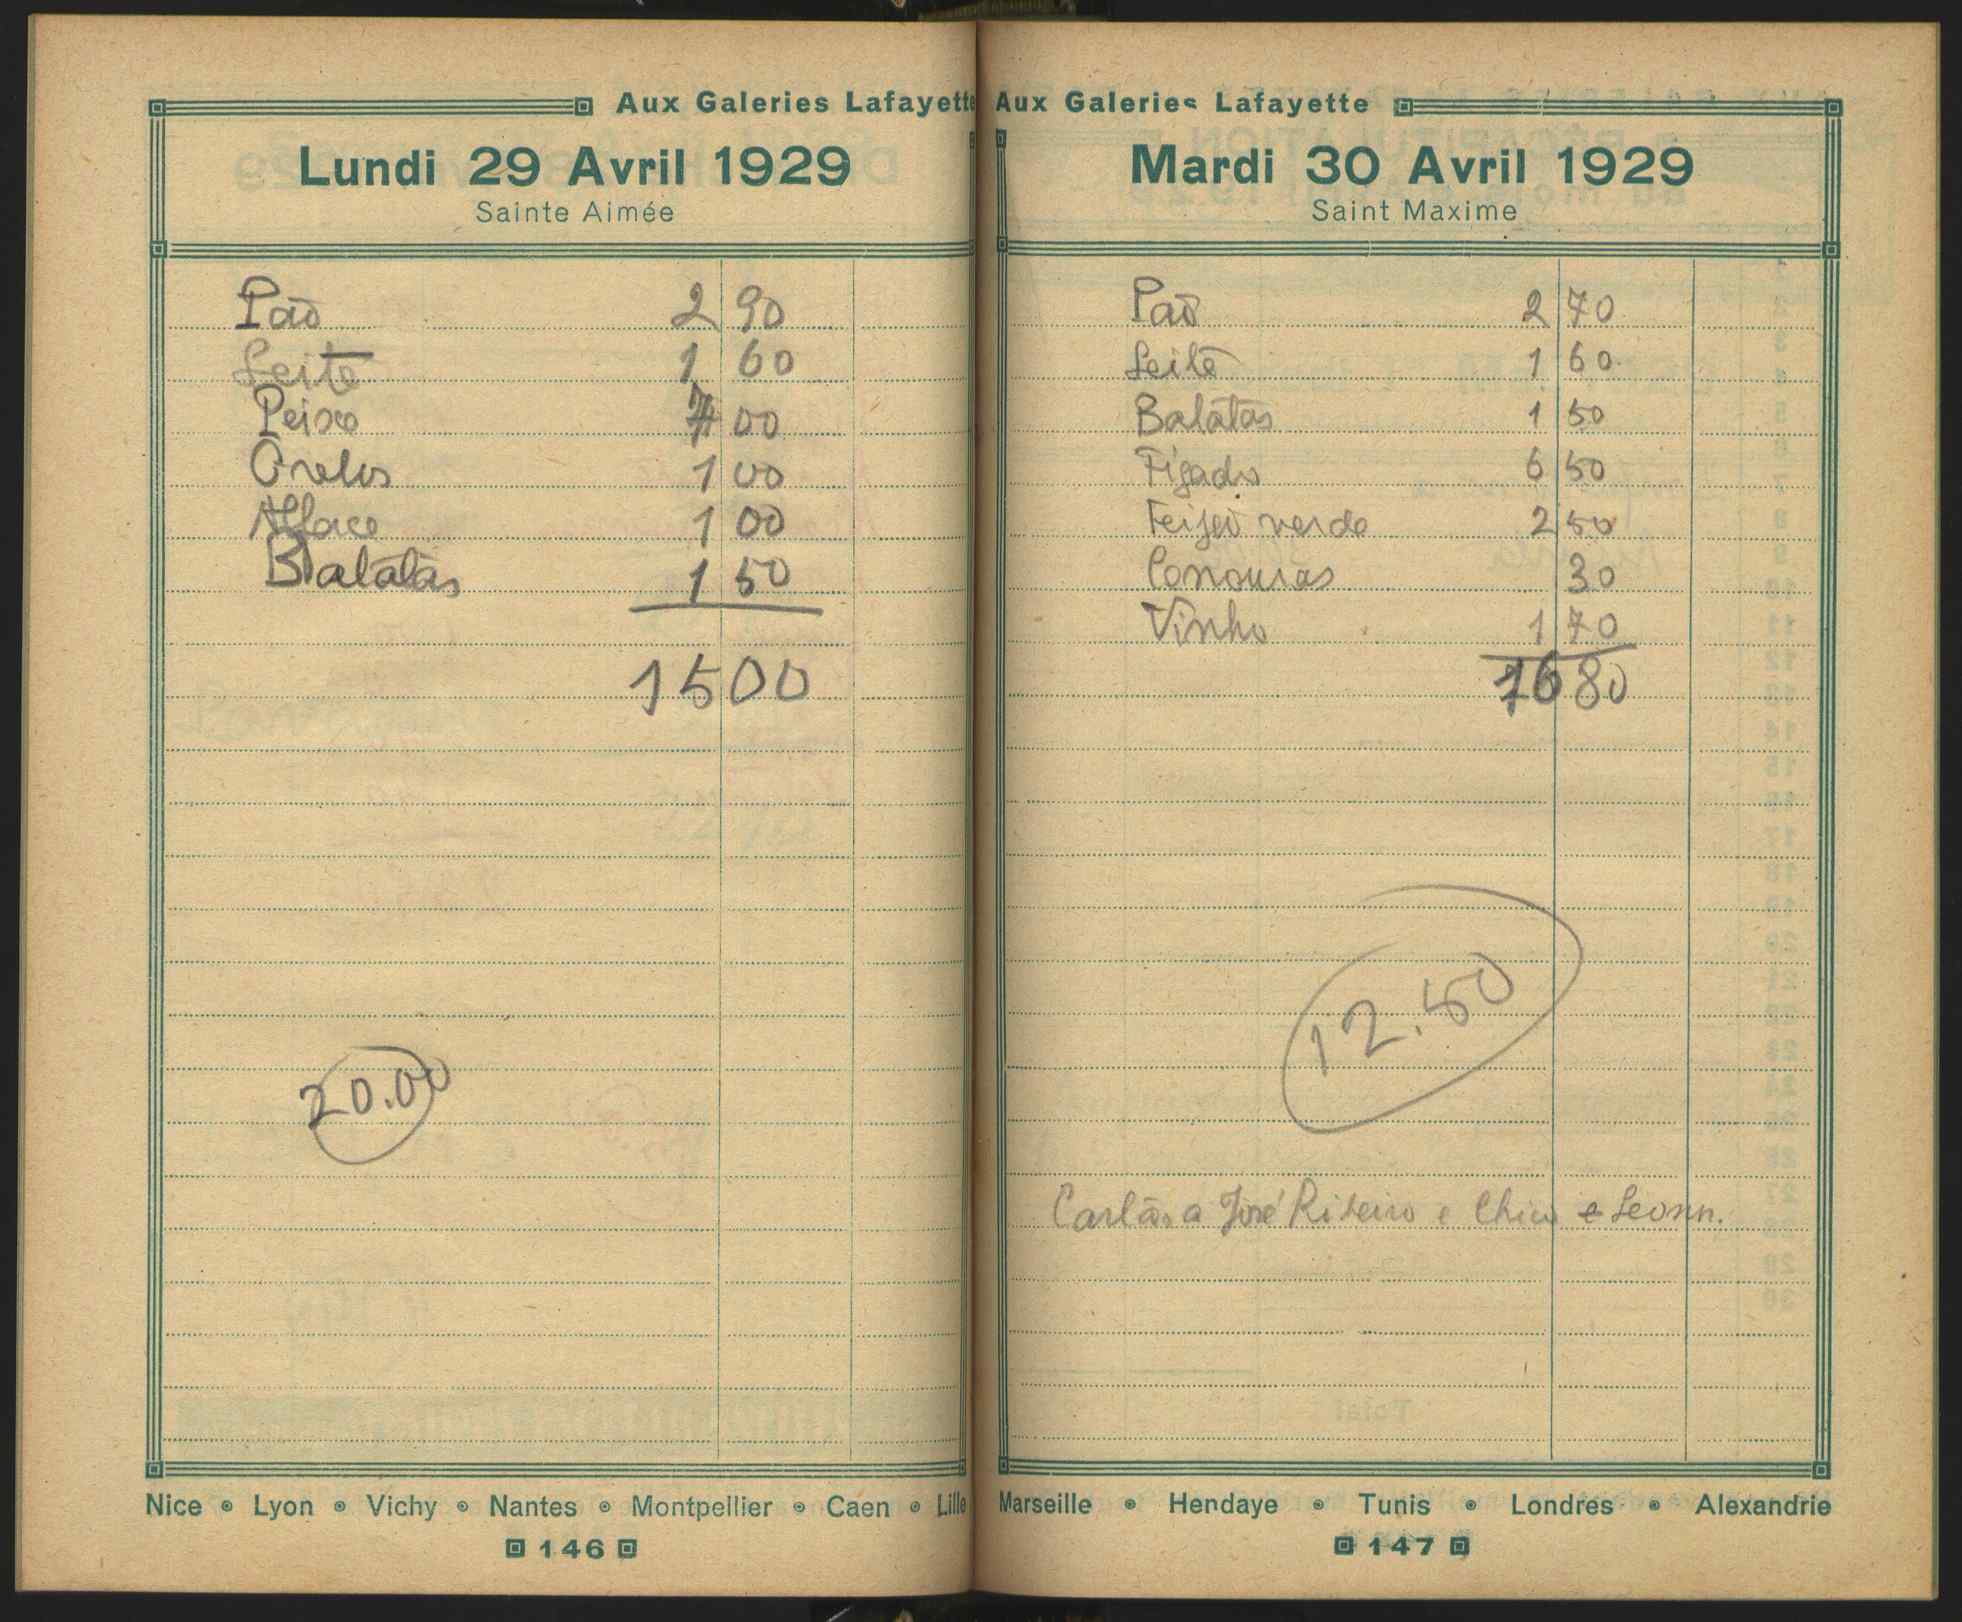 Aux Galeries Lafayette
Lundi 29 Avril 1929
Sainte Aimée
Pão 2 90
Leite 1 60
Peixe 7 00
Ovelos 1 00
Alface 1 00
Batatas 1 50
15 00
20.00
Nice Lyon Vichy Nantes Montpellier Caen Lille
146
Aux Galeries Lafayette
Mardi 30 Avril 1929
Saint Maxime
Pão 2 70
Leite 1 60
Batatas 1 50
Figado 6 50
Feijão verde 2 50
Cenouras 30
Vinho 1 70
16 80
12.50
Cartão a José Ribeiro e Chico e Leonn.
Marseille Hendaye Tunis Londres Alexandrie
147